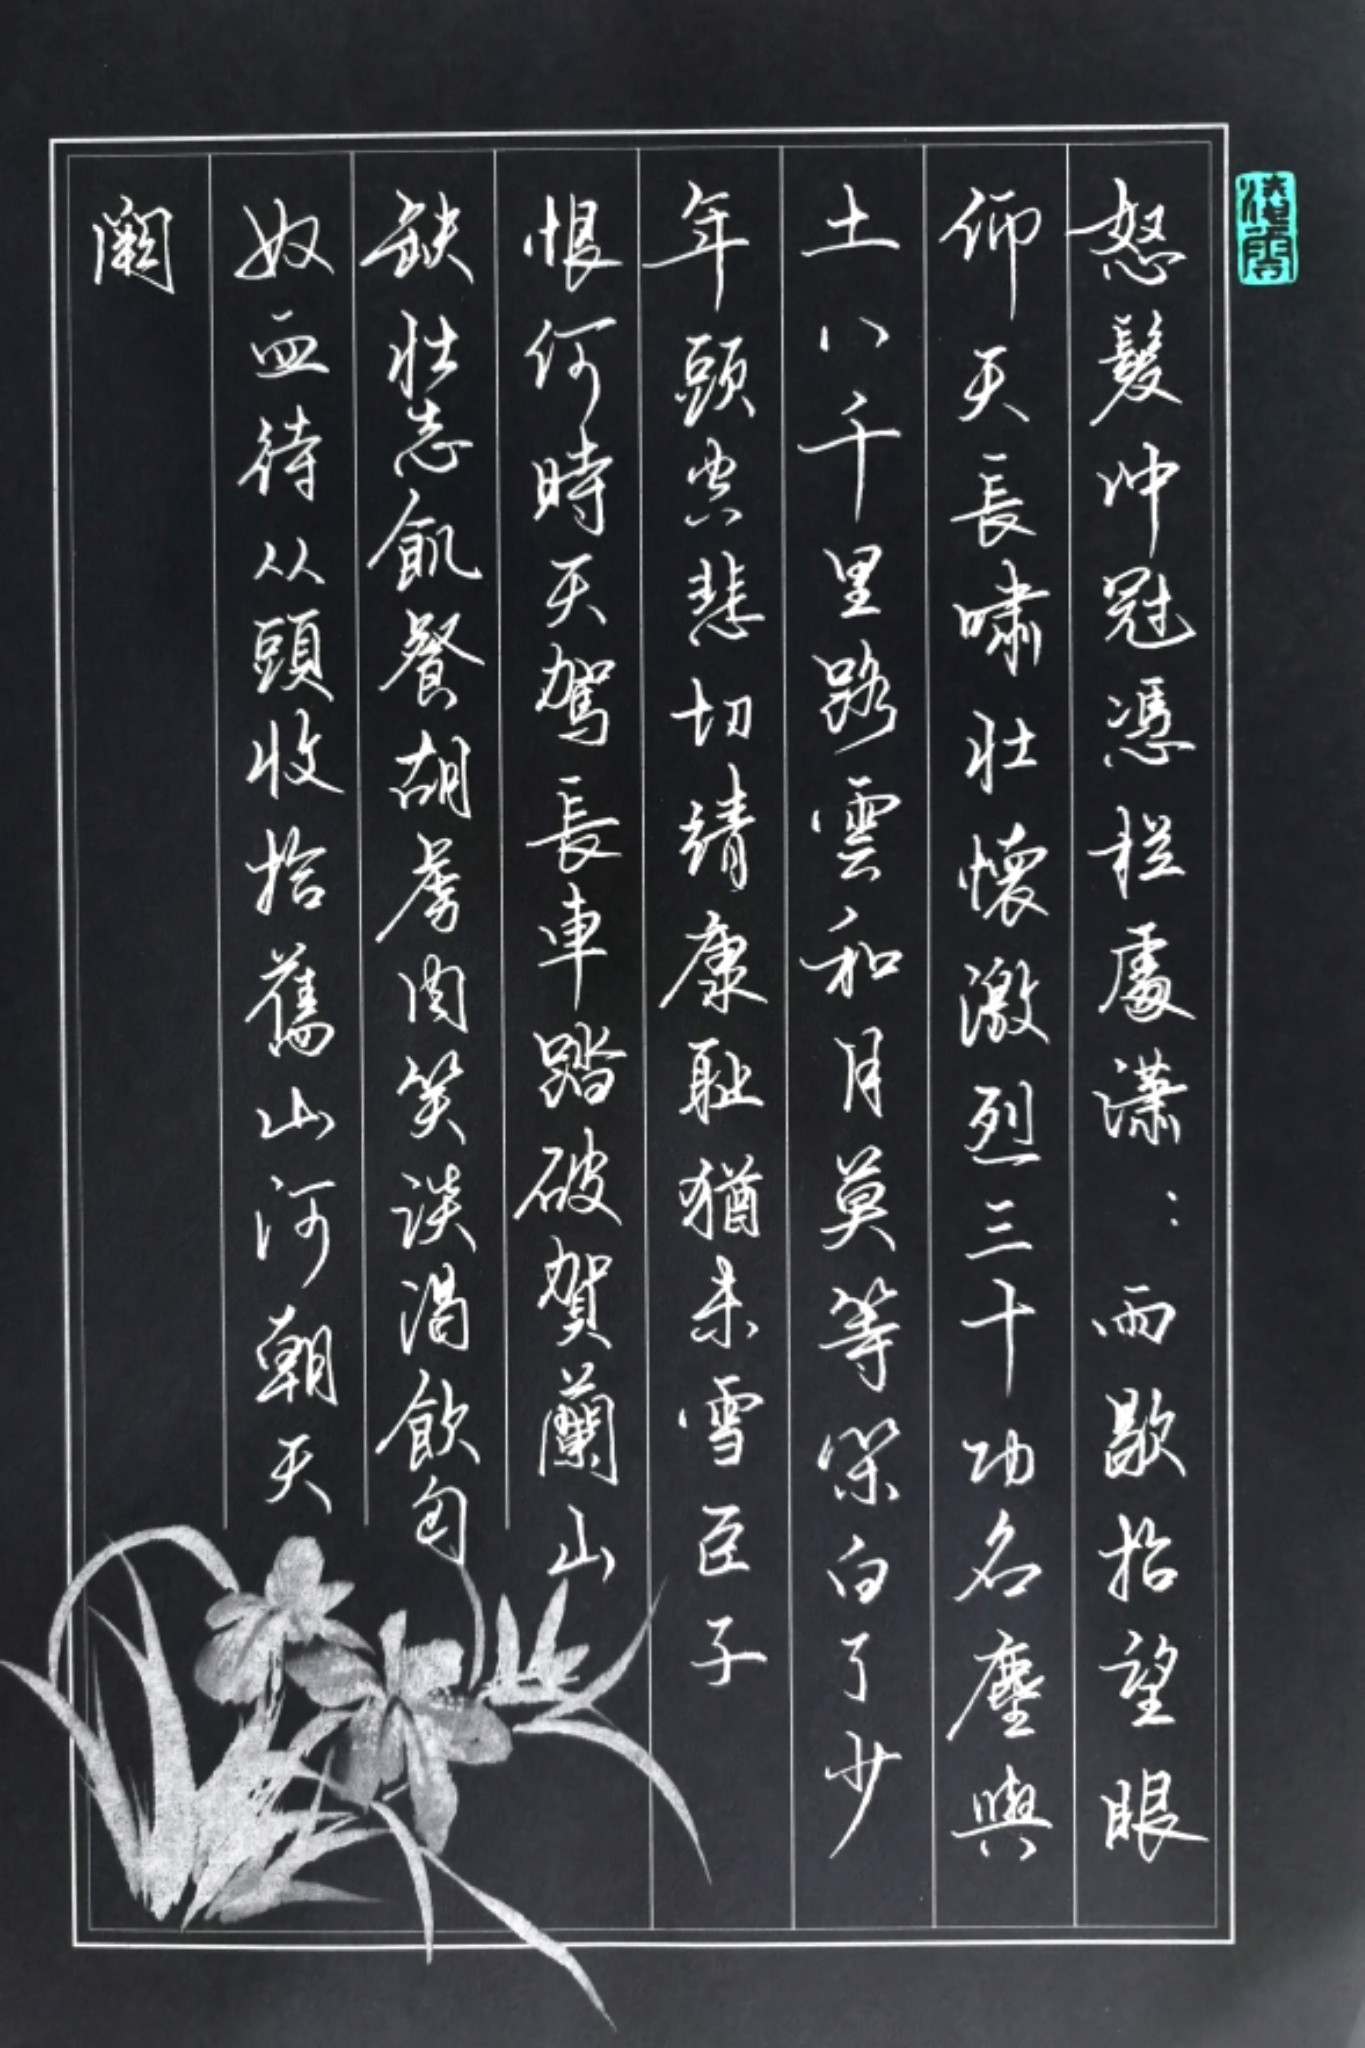 怒髮冲冠憑栏處潇：雨歇抬望眼
仰天長啸壮懷激烈三十功名塵與
土八千里路雲和月莫等閑白了少
年頭空悲切靖康耻猶未雪臣子
恨何時天駕長車踏破賀蘭山
缺壮志飢餐胡虏肉笑談渴飲匈
奴血待从頭收拾舊山河朝天
闕